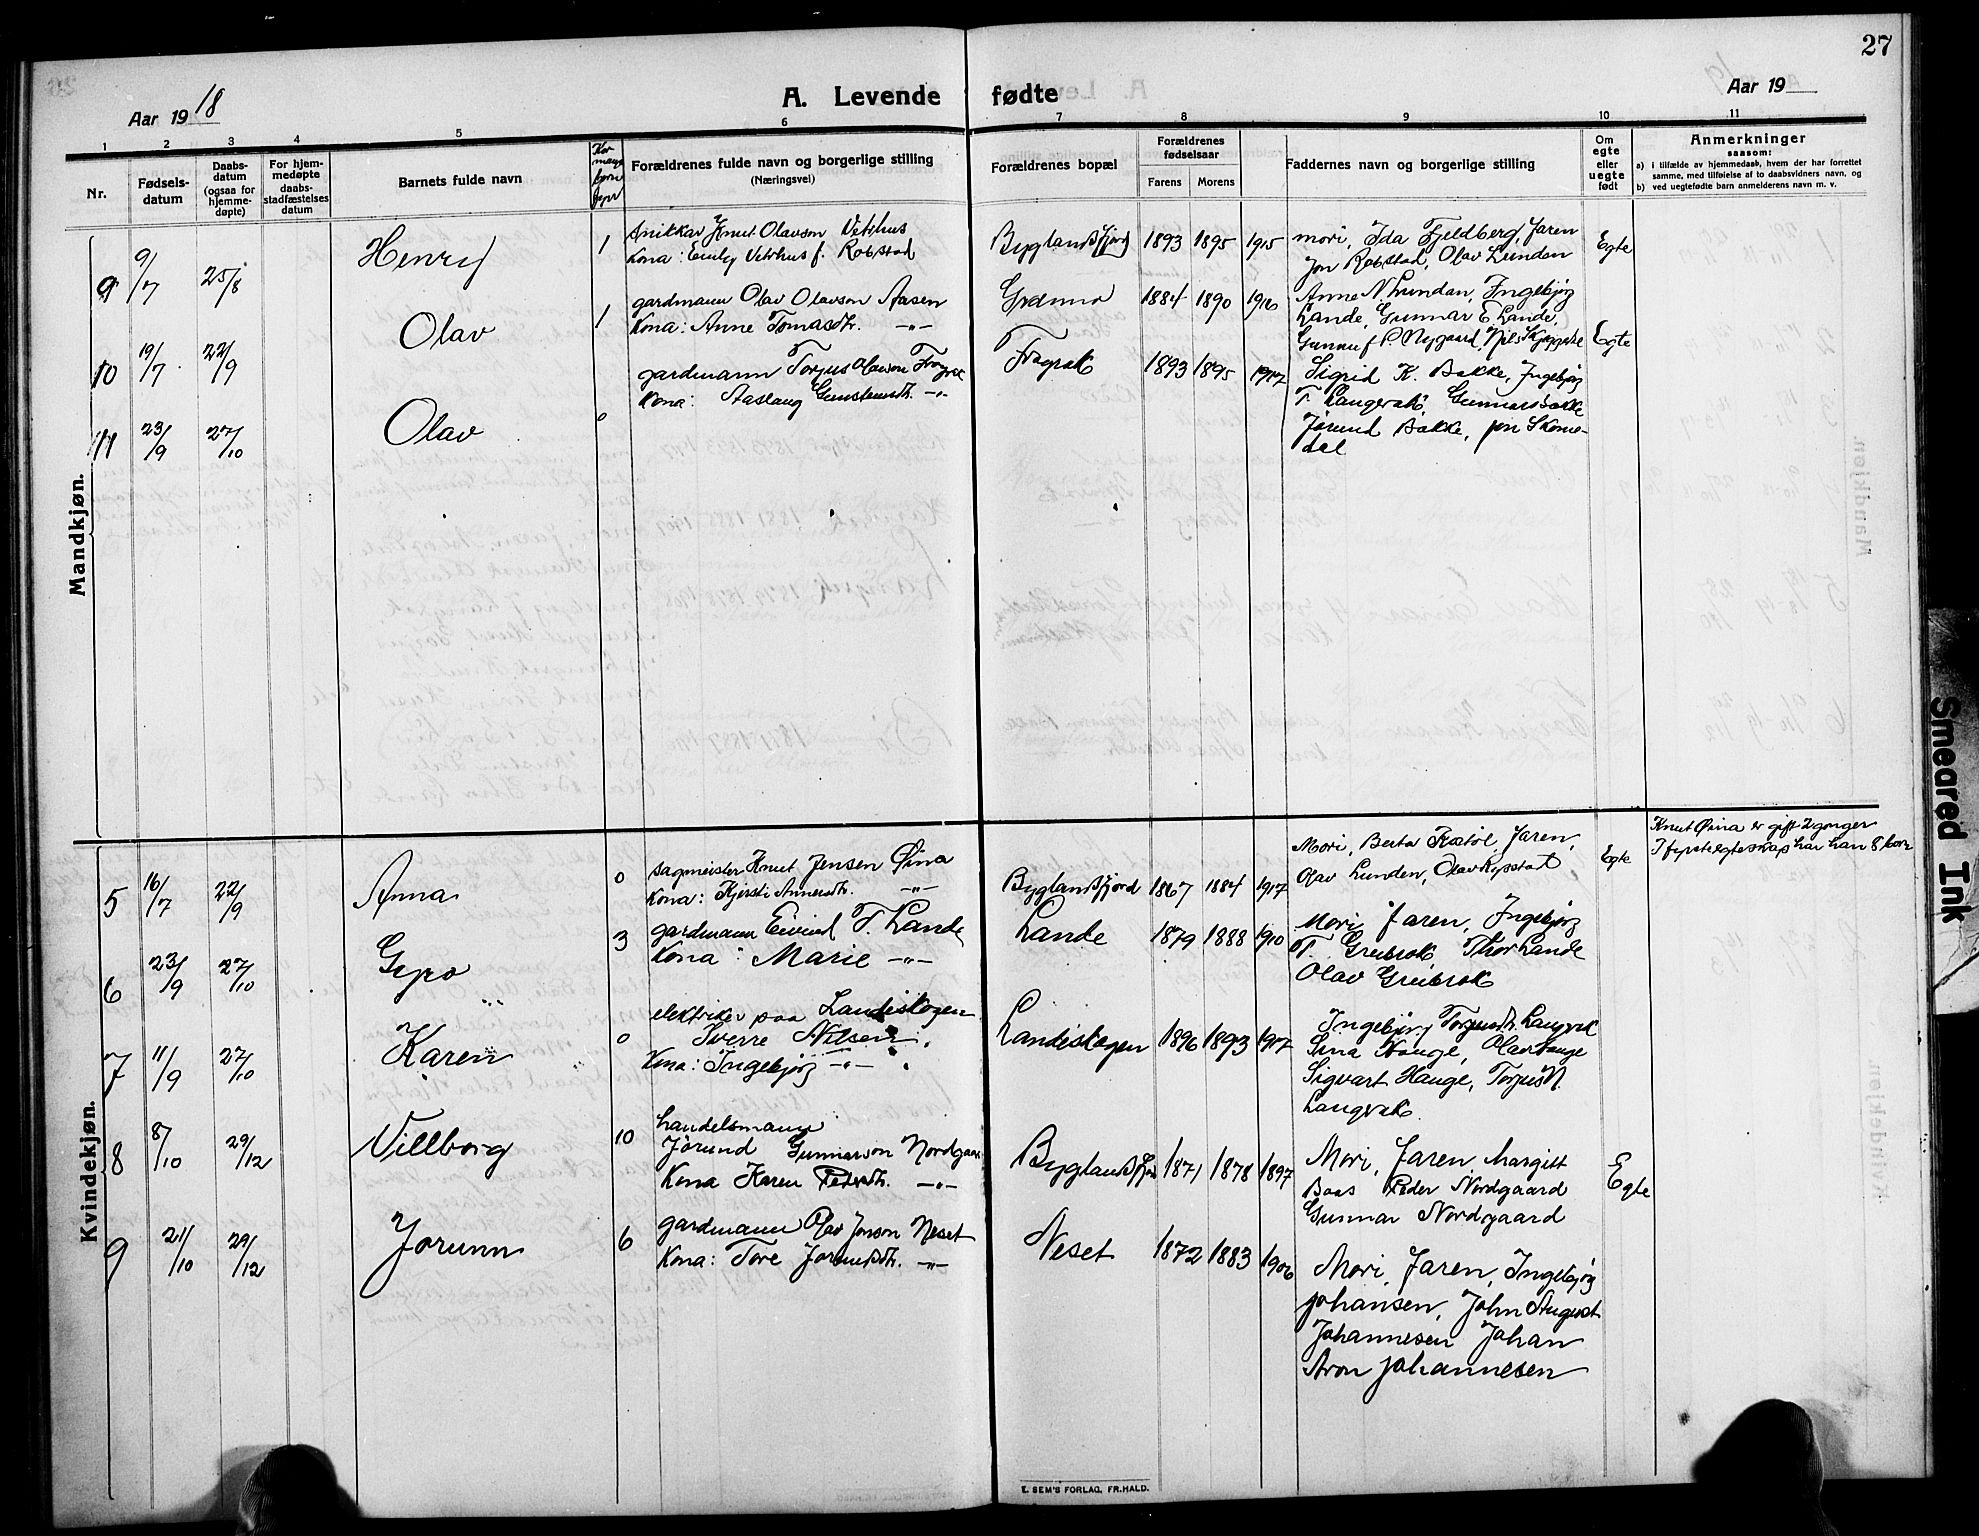 27
Aar 1918
A. Levende fødte
Aar 19
1 2 3 4 5 6 7 8 9 10 11
Nr.
Fødsels-
datum
Daabs-
datum
(ogsaa for
hjemme-
døpte)
For hjem-
medøpte
daabs-
stadfæstelses
datum
Barnets fulde navn
Kor
mange
born
fyrr
Forældrenes fulde navn og borgerlige stilling
(Næringsvei)
Forældrenes bopæl
Forældrenes
fødselsaar
Farens Morens
Faddernes navn og borgerlige stilling
Om
egte
eller
uegte
født
Anmerkninger
saasom:
a) i tilfælde av hjemmedaab, hvem der har forrettet
samme, med tilføielse af to daabsvidners navn, og
b) ved uegtefødte barn anmelderens navn m. v.
Mandkjøn.
9 9/7 25/8 Henry 1
Snikkar Knut Olavson Vetrhus
Kona: Emily Vetrhus f. Robstad
Byglandsfjord 1893 1895 1915
Mori, Ida Fjeldberg, Faren
Jon Robstad, Olav Lunden
Egte
10 19/7 22/9 Olav 1
gardmann Olav Olavson Aasen
Kona: Anne Tomasdtr. -"-
1884 1890 1916
Anne N. Lundan, Ingebjørg
Lande, Gunnar E. Lande,
P. Nygaard, Nils
Egte
11 23/9 27/10 Olav 0
gardmann Torjus Olavson
Kona: Aaslaug -"-
1893 1895 1917
Sigrid K. Bakke, Ingebjørg
T. Langerak, Gunnar Bakke
Jørund Bakke, Jon Skome-
dal
Kvindekjøn.
5 16/7 22/9 Anna 0
sagmeister Knut Jensen Øina
Kona: Kjersti -"-
Byglandsfjord 1867 1884 1917
Mori, Berta Faren,
Olav Lunden, Olav
Egte
Knut Øina er gift 2 gonger
I fyrste egteskap har han 8 born
6 23/9 27/10 Gyro 3
gardmann Eivind T. Lande
Kona: Marie -"-
Lande 1879 1888 1910
Mori, Faren, Ingebjørg
T. Greibrok, Thor Lande
Olav Greibrok
7 11/9 27/10 Karen 0
elektriker paa Landeskogen
Sverre Nilsen
Kona: Ingebjørg -"-
Landeskogen 1896 1893 1917
Ingebjørg Torjusdtr. Langerak
Sina Hauge, Olav Hauge
Sigvart Hauge, Torjus N.
Langerak.
8 8/10 29/12 Villborg 10
handelsmann
Jørund Gunnarson Nordgaard
Kona Karen Pedersdtr. -"-
Byglandsfjord 1871 1878 1897
Mori, Faren, Margitt
Baas Peder Nordgaard
Gunnar Nordgaard
Egte
9 21/10 29/12 Jorunn 6
gardmann Olav Jonson Neset
Kona: Tore Jorundsdtr. -"-
Neset 1872 1883 1906
Mori, Faren, Ingebjørg
Johansen, John August
Johannesen Johan
Aron Johannesen
E. SEM'S FORLAG, FR.HALD.
Smeared Ink